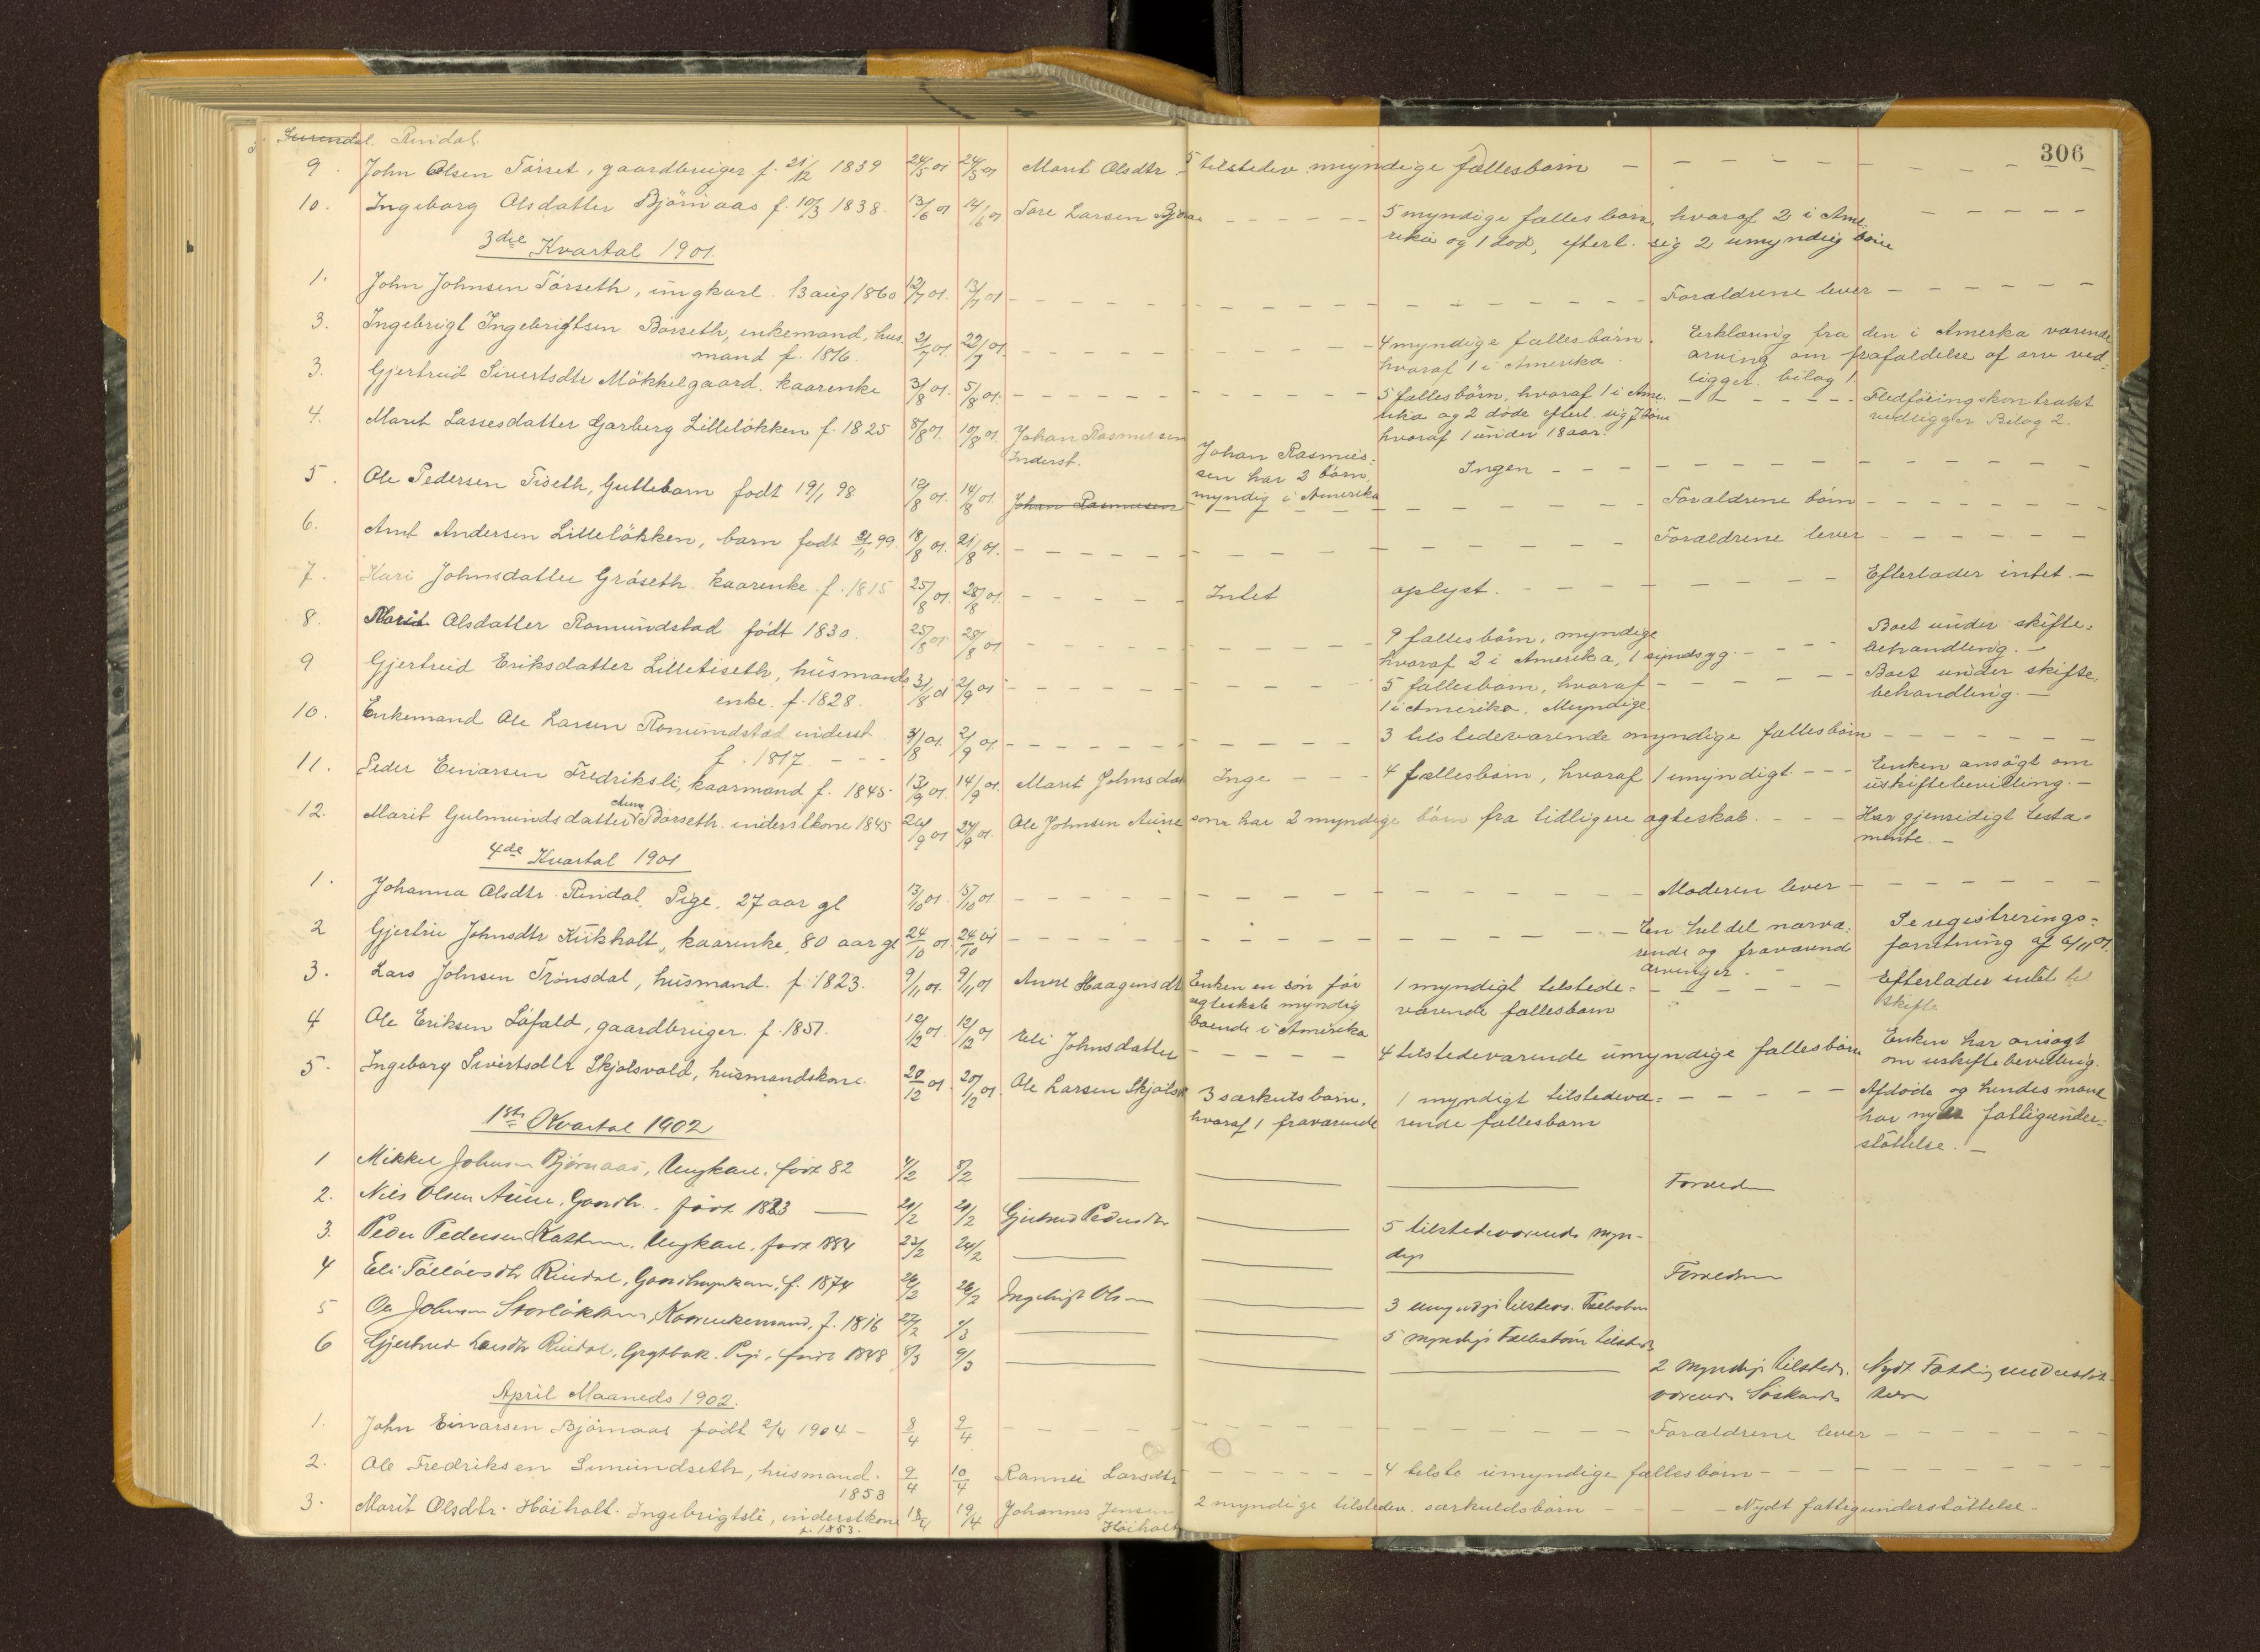 306
Surendal. Rindal
9. John Olsen Törset, gaardbruger f. 21/12 1839 24/5 01 24/5 01 Marit Olsdtr. 5 tilstedev. myndige fællesbörn
10. Ingeborg Olsdatter Björnaas f. 10/3 1838. 13/6 01 14/6 01 Tore Larsen 5 myndige fælles börn, hvoraf 2 i Ame-
rika og 1 död, efterl. sig 2 umyndig börn
3die Kvartal 1901.
1. John Johnsen Törseth, ungkarl. 13 aug 1860 12/7 01. 13/7 01 Forældrene lever
3. Ingebrigt Ingebrigtsen Börseth, enkemand, hus- 21/7 01. 22/7 01. 4 myndige fællesbörn. Erklæring fra den i Amerika værende
mand f. 1816. hvoraf 1 i Amerika arving om frafaldelse af arv ved-
ligger. bilag 1.
3. Gjertrud Sivertsdtr Mökkelgaard. kaarenke 3/8 01. 5/8 01. 5 fællesbörn, hvoraf 1 i Ame- Fledföringskontrakt
rika og 2 döde efterl. sig 7 börn vedligger Bilag 2.
hvoraf 1 under 18 aar.
4. Marit Lassesdatter Garberg Lillelökken f. 1825 8/8 01. 10/8 01. Johan Rasmussen Johan Rasmus- Ingen
Inderst. sen har 2 börn
myndig i Amerika
5. Ole Pedersen Tiseth, Guttebarn født 19/1 98 12/8 01. 14/8 01. Johan Rasmussen Forældrene börn
6. Arnt Andersen Lillelökken, barn født 21/11 99. 18/8 01. 21/8 01. Forældrene lever
7. Kari Johnsdatter Gröseth kaarenke f. 1815 25/8 01. 28/8 01. Intet oplyst. Efterlader intet.
8. Marit Olsdatter Romundstad født 1830. 25/8 01 28/8 01 9 fællesbörn, myndige Boet under skifte-
hvoraf 2 i Amerika, 1 sindsyg. behandling.
9 Gjertrud Eriksdatter Lilletiseth, husmands 31/8 01 2/9 01 5 fællesbörn, hvoraf Boet under skifte-
enke. f. 1828. 1 i Amerika. Myndige. behandling.
10. Enkemand Ole Larsen Romundstad inderst 31/8 01. 2/9 01 3 tilstedeværende myndige fællesbörn
f. 1817.
11. Peder Einarsen Fredriksli, kaarmand f. 1845. 13/9 01. 14/9 01. Marit Johnsdat Inge 4 fællesbörn, hvoraf 1 umyndigt. Enken ansögt om
uskiftebevilling.
12. Marit Gulmundsdatter Aune Börseth. inderstkone 1845 26/9 01 27/9 01. Ole Johnsen Aune som har 2 myndige börn fra tidligere ægteskab. Har gjensidigt testa-
mente.
4de Kvartal 1901
1. Johanna Olsdtr. Rindal. Pige, 27 aar gl 13/10 01. 15/10 01. Moderen lever
2 Gjertru Johnsdtr Kükholt, kaarenke, 80 aar gl 24/10 01 24/10 01 En hel del nærvæ- Se registrerings-
rende og fraværend forretning af 6/11 01.
arvinger.
3. Lars Johnsen Trönsdal, husmand. f. 1823. 9/11 01. 9/11 01 Anne Haagensdt Enken en sön för 1 myndigt tilstede- Efterlader intet til
ægteskab myndig værende fællesbarn skifte
boende i Amerika
4 Ole Eriksen Löfald, gaardbruger. f. 1857. 10/12 01. 12/12 01 Eli Johnsdatter 4 tilstedeværende umyndige fællesbörn Enken har ansögt
om uskiftebevilling.
5. Ingeborg Sivertsdtr Skjölsvold, husmandskone. 20/12 01. 20/12 01. Ole Larsen 3 særkulsbarn. 1 myndigt tilstedevæ- Afdöde og hendes mand
hvoraf 1 fraværende rende fællesbarn har nydt fattigunder-
stöttelse.
1ste Kvartal 1902
1 Mikkel Johnsen Björnaas, Ungkarl, født 82 4/2 8/2
2. Nils Olsen Aune, Gaardbr. født 1823 20/2 20/2 Gjertrud Pedersdtr 5 tilstedeværende myn-
dige
3. Peder Pedersen Ungkarl. født 1884 23/2 24/2
4 Eli Rindal, f. 1874 26/2 26/2 Ingebrigt Olsen 3 umyndige tilstedev. Fællesbörn
5 Ole Johnsen Storlökken, Kaarenkemand, f. 1816 27/2 1/3 5 myndige Fællesbörn tilsted.
6 Gjertrud Larsdtr Rindal, Pige, født 1848 8/3 9/3 2 myndige tilsted. Nydt Fattigunderstöt-
værende Söskende telse
April Maaneds 1902.
1. John Einarsen Björnaas født 2/4 1904 8/4 9/4 Forældrene lever
2. Ole Fredriksen Sunundseth, husmand. 9/4 10/4 Rannei Larsdtr 4 tilste umyndige fællesbörn
1853
3. Marit Olsdtr. Höiholt. Ingebrigtsli, inderstkone 18/4 19/4 Johannes Jensen 2 myndige tilstedev. særkuldsbörn Nydt fattigunderstöttelse.
f. 1853. Höiholt